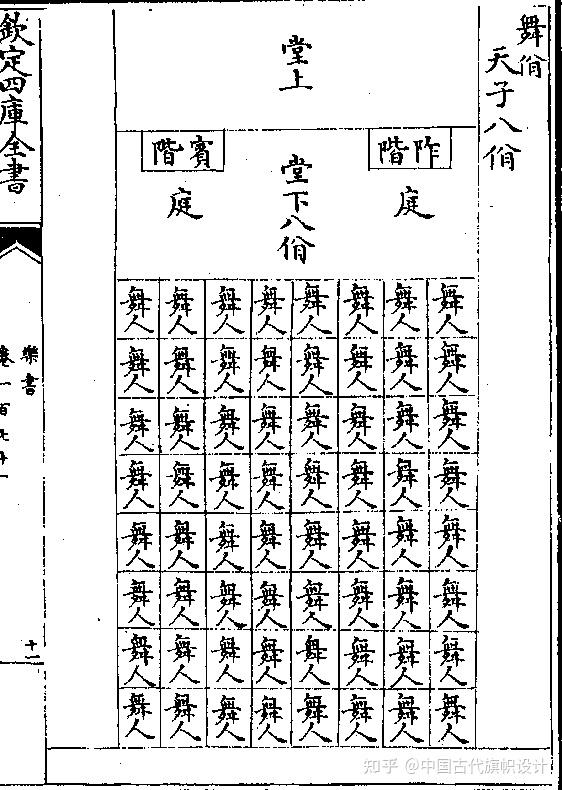 舞佾
天子八佾
堂上
阼階
賓階
庭
堂下八佾
庭
舞人 舞人 舞人 舞人 舞人 舞人 舞人 舞人
舞人 舞人 舞人 舞人 舞人 舞人 舞人 舞人
舞人 舞人 舞人 舞人 舞人 舞人 舞人 舞人
舞人 舞人 舞人 舞人 舞人 舞人 舞人 舞人
舞人 舞人 舞人 舞人 舞人 舞人 舞人 舞人
舞人 舞人 舞人 舞人 舞人 舞人 舞人 舞人
舞人 舞人 舞人 舞人 舞人 舞人 舞人 舞人
舞人 舞人 舞人 舞人 舞人 舞人 舞人 舞人
欽定四庫全書
樂書
卷一百
十一
知乎 @中国古代旗帜设计